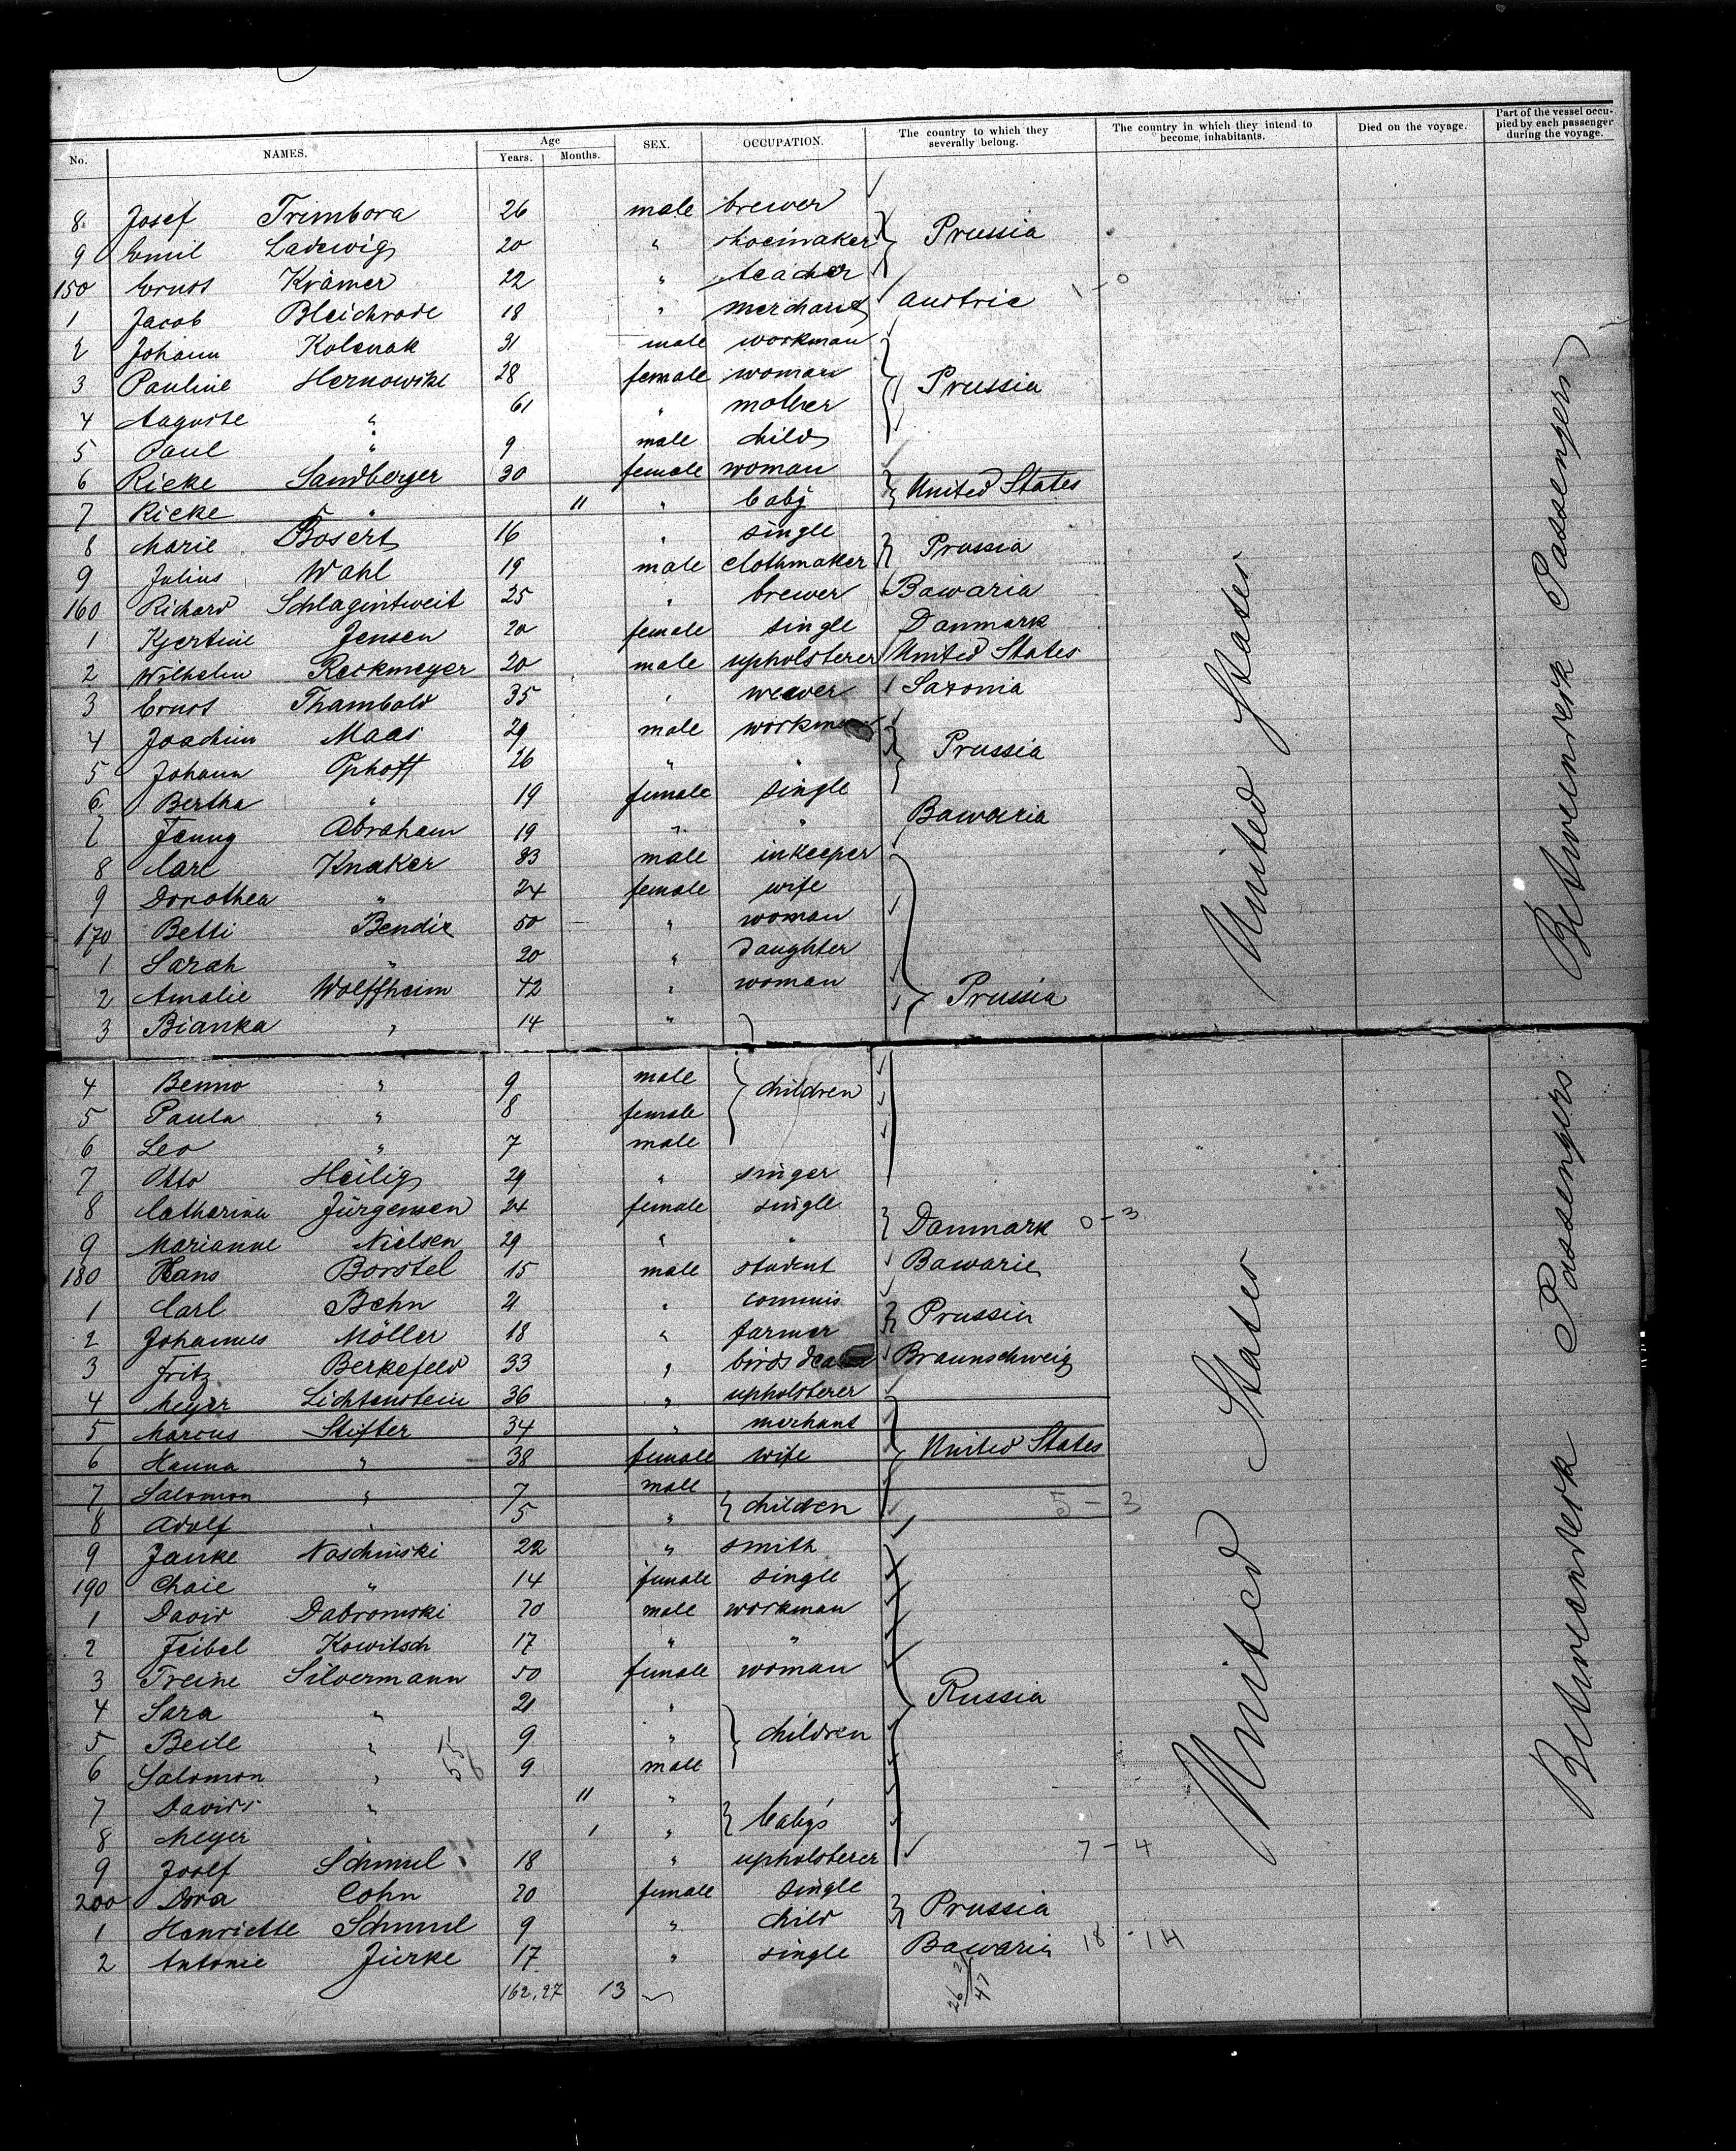 No. NAMES. Age Years. Months. SEX. OCCUPATION. The country to which they severally belong. The country in which they intend to become inhabitants. Died on the voyage. Part of the vessel occupied by each passenger during the voyage.
8 Josef Trimborn 26 male brewer
9 Emil Ladewig 20 " shoemaker Prussia
150 Ernst Krämer 22 " teacher
1 Jacob Bleichrode 18 " merchant Austria 1 - 0
2 Johann Kolenak 31 male workman
3 Pauline Hernowski 28 female woman Prussia
4 Auguste " 61 " mother
5 Paul " 9 male child
6 Rieke Sandberger 30 female woman United States
7 Rieke " 11 " baby
8 Marie Bosert 16 " single Prussia
9 Julius Wahl 19 male clothmaker
160 Richard Schlagintweit 25 " brewer Bawaria
1 Kjertine Jensen 20 female single Danmark
2 Wilhelm Reckmeyer 20 male upholsterer United States
3 Ernst Thambold 35 " weaver Saxonia
4 Joachim Maas 29 male workman
5 Johann Ophoff 26 " " Prussia
6 Bertha " 19 female single
7 Fanny Abraham 19 " " Bawaria
8 Carl Knaker 33 male inkeeper
9 Dorothea " 24 female wife
170 Betti Bendix 50 " woman
1 Sarah " 20 " daughter
2 Amalie Wolffheim 42 " woman Prussia
3 Bianka " 14 "
4 Benno " 9 male children
5 Paula " 8 female
6 Leo " 7 male
7 Otto Heilig 29 " singer
8 Catharina Jürgensen 24 female single Danmark 0 - 3
9 Marianne Nielsen 29 " "
180 Hans Borstel 15 male student Bawaria
1 Carl Behn 21 " commis Prussia
2 Johannes Möller 18 " farmer
3 Fritz Berkefeld 33 " birds Braunschweig
4 Meyer Lichtenstein 36 " upholsterer
5 Marcus Stifter 34 " merhant
6 Hanna " 38 female wife United States
7 Salomon " 7 male children
8 Adolf " 5 " 5 - 3
9 Janke Naschinski 22 " smith
190 Chaie " 14 female single
1 David Dabromski 20 male workman
2 Feibel Kowitsch 17 " "
3 Treine Silvermann 50 female woman Russia
4 Sara " 21 "
5 Beile " 9 " children
6 Salomon " 9 male
7 Davids " 11 " baby's
8 Meyer " 1 "
9 Josef Schmul 18 " upholsterer 7 - 4
200 Dora Cohn 20 female single Prussia
1 Henriette Schmul 9 " child
2 Antonie Jurke 17 " single Bawaria 18 - 14
162,27 13
United States
Betweenderk Passengers
United States
Betweenderk Passengers